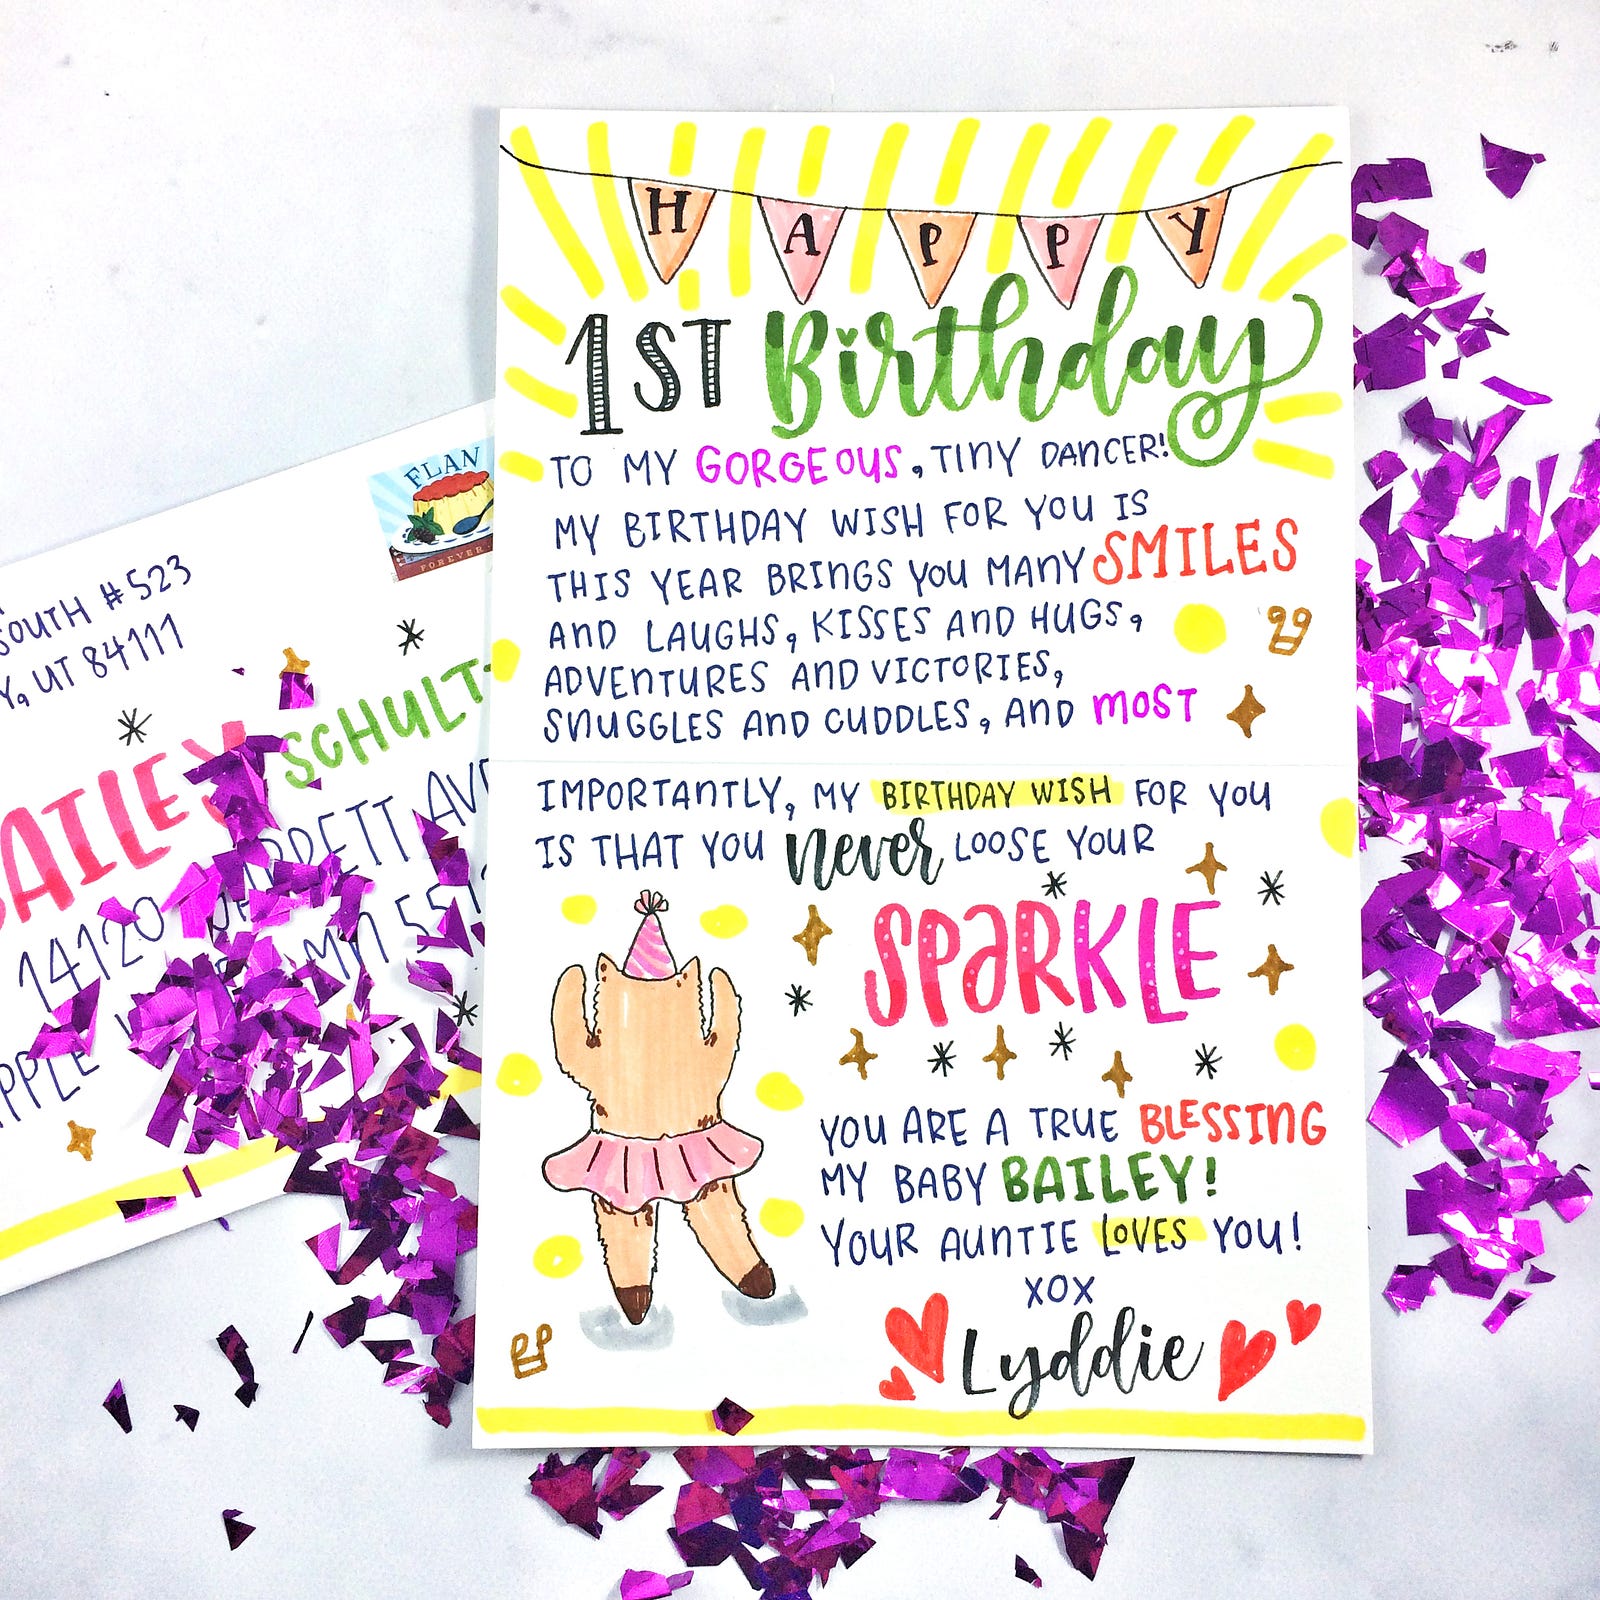 HAPPY
1ST Birthday
TO MY GORGEOUS, TINY DANCER!
MY BIRTHDAY WISH FOR YOU IS
THIS YEAR BRINGS YOU MANY SMILES
AND LAUGHS, KISSES AND HUGS,
ADVENTURES AND VICTORIES,
SNUGGLES AND CUDDLES, AND MOST
IMPORTANTLY, MY BIRTHDAY WISH FOR YOU
IS THAT YOU never LOOSE YOUR
SPARKLE
YOU ARE A TRUE BLESSING
MY BABY BAILEY!
YOUR AUNTIE LOVES YOU!
XOX
Lyddie
FLAN
FOREVER
SOUTH #523
Y, UT 84111
BAILEY SCHULT
14120 AVE
PPLE MN 551